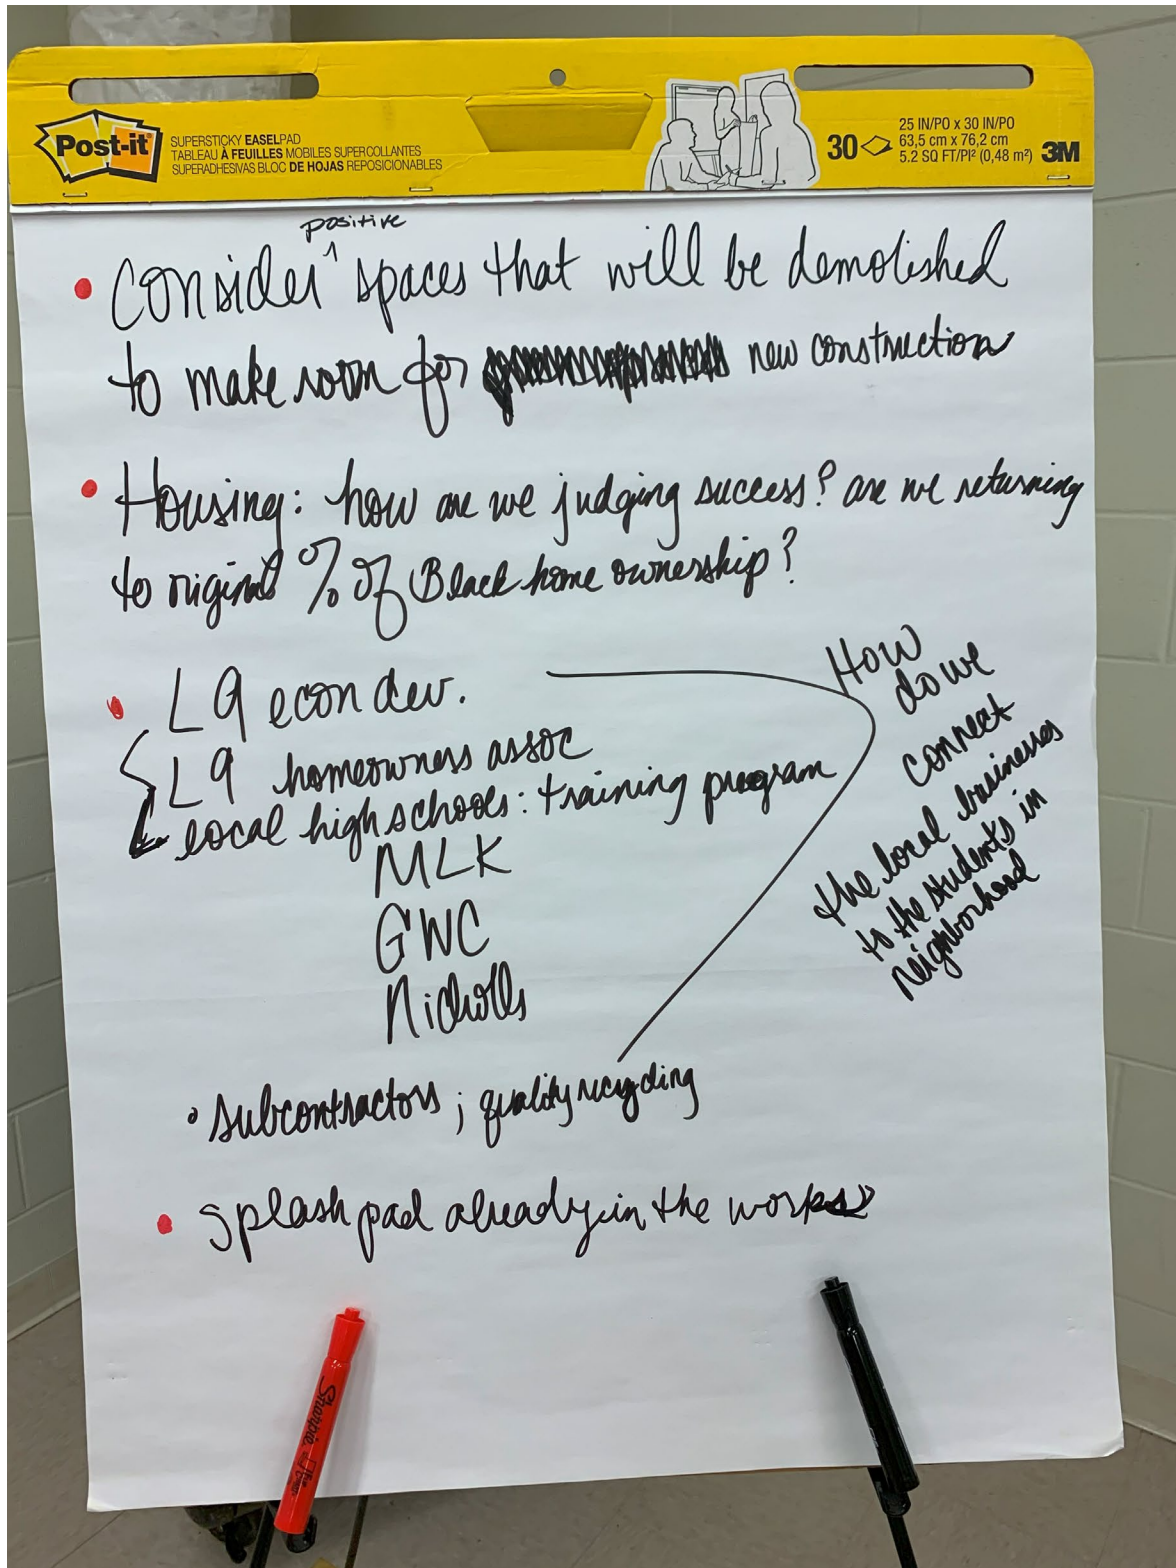 Post-it
SUPERSTICKY EASELPAD
TABLEAU À FEUILLES MOBILES SUPERCOLLANTES
SUPERADHESIVAS BLOC DE HOJAS REPOSICIONABLES
30
25 IN/PO x 30 IN/PO
63,5 cm x 76,2 cm
5.2 SQ FT/PI² (0,48 m²)
3M
positive
• Consider ^ spaces that will be demolished
to make room for new construction
• Housing: how are we judging success? are we returning
to original % of Black home ownership?
• L9 econ dev.
L9 homeowners assoc
local high schools: training program
MLK
GWC
Nicholls
How
do we
connect
the local businesses
to the students in
neighborhood
• subcontractors; quality recycling
• splash pad already in the works
Sharpie